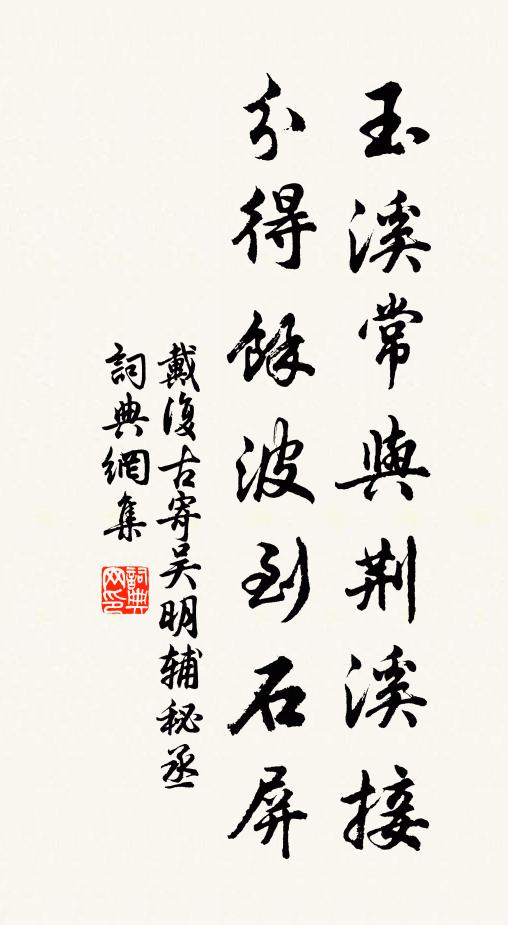 玉溪常與荆溪接
分得餘波到石屏
戴復古寄吴明辅秘丞
詞典網集
詞典網印